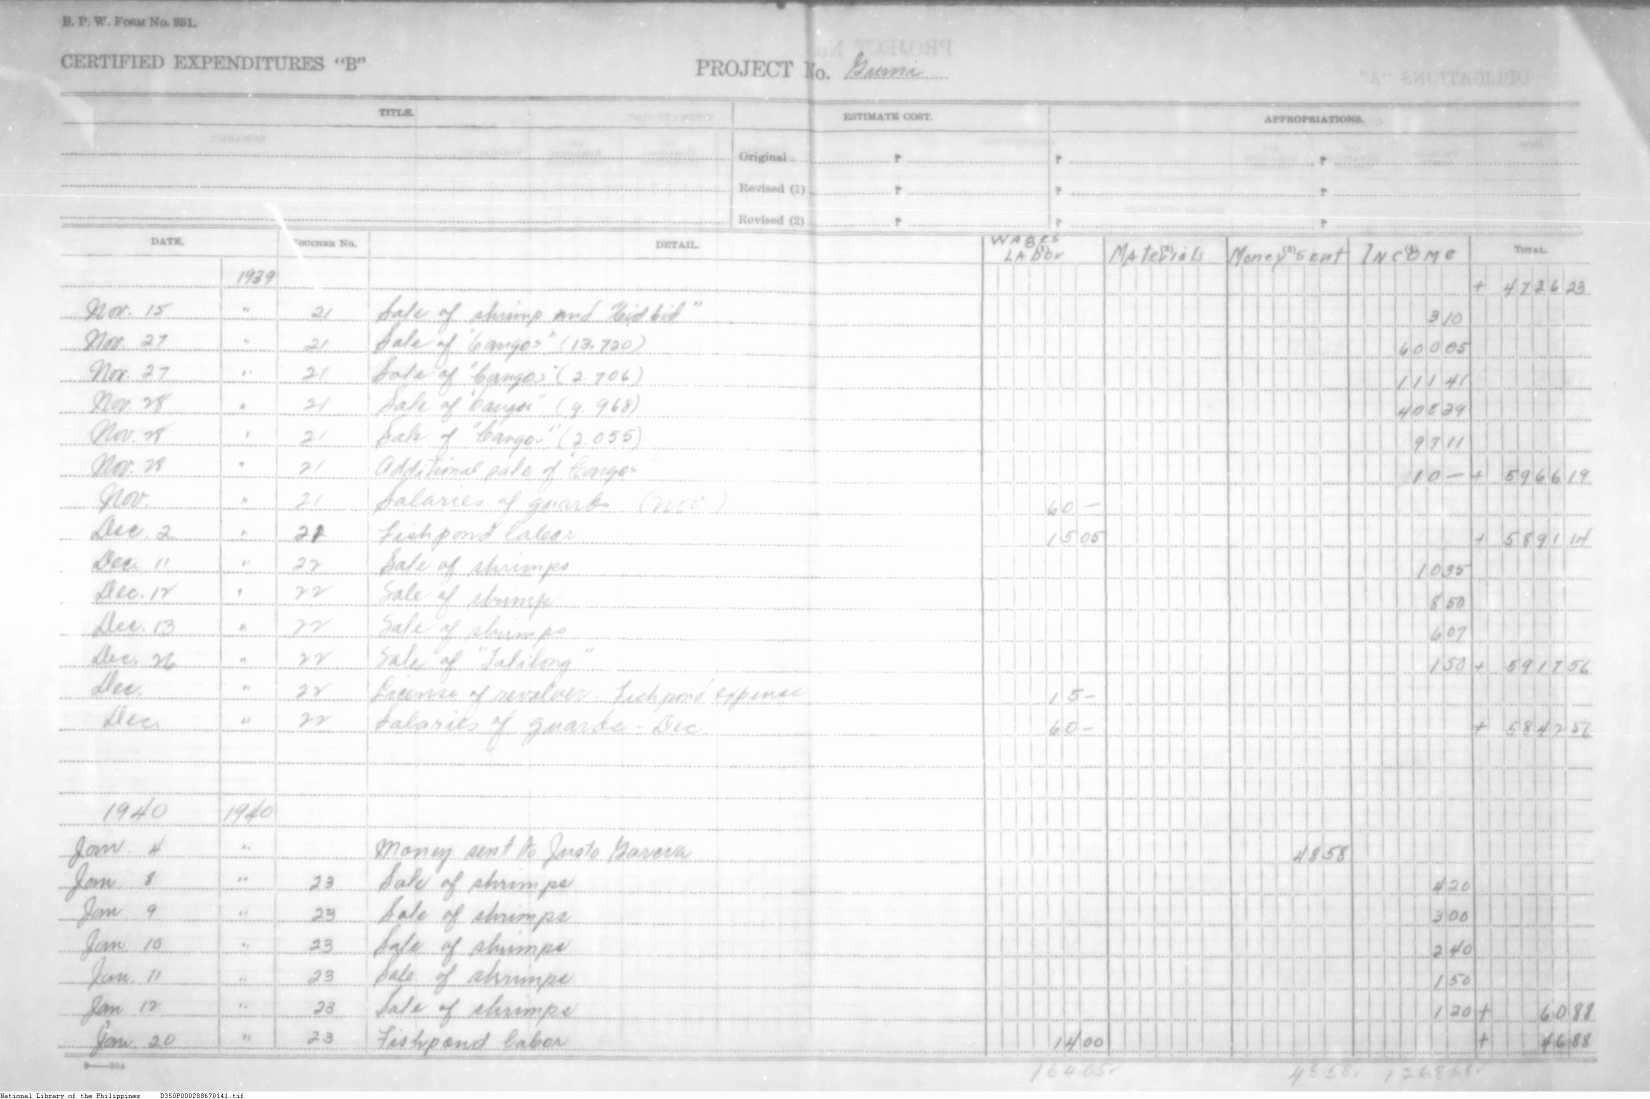 B. P. W. Form No. 931.
CERTIFIED EXPENDITURES "B"
PROJECT No. Guimi
TITLE. ESTIMATE COST. APPROPRIATIONS.
Original ₱ ₱ ₱
Revised (1) ₱ ₱ ₱
Revised (2) ₱ ₱ ₱
DATE. VOUCHER No. DETAIL. WAGES LABOR Materials Money Sent INCOME TOTAL.
1939 + 4726 23
Nov. 15 " 21 Sale of shrimp and 3 10
Nov. 27 " 21 Sale of "bangos" (13.720) 600 05
Nov. 27 " 21 Sale of "bangos" (2.706) 111 41
Nov. 28 " 21 Sale of bangos" (9.968) 408 29
Nov. 28 " 21 Sale of "bangos" (2.055) 97 11
Nov. 28 " 21 Additional sale of bangos 10 — + 5966 19
Nov. " 21 Salaries of guards (Nov.) 60 —
Dec. 2 " 21 Fishpond labor 15 05 + 5891 14
Dec. 11 " 22 Sale of shrimps 10 35
Dec. 12 " 22 Sale of shrimp 8 50
Dec. 13 " 22 Sale of shrimps 6 07
Dec. 26 " 22 Sale of "Talilong" 1 50 + 5917 56
Dec. " 22 License of revolver Fishpond expense 15 —
Dec. " 22 Salaries of guards - Dec. 60 — + 5842 56
1940 1940
Jan. 4 " Money sent to Justo 48 58
Jan. 8 " 23 Sale of shrimps 4 20
Jan 9 " 23 Sale of shrimps 3 00
Jan. 10 " 23 Sale of shrimps 2 40
Jan. 11 " 23 Sale of shrimps 1 50
Jan 12 " 23 Sale of shrimps 1 20 + 60 88
Jan. 20 " 23 Fishpond labor 14 00 + 46 88
164 05 48 58 1268 68
National Library of the Philippines D350P000288670141.tif